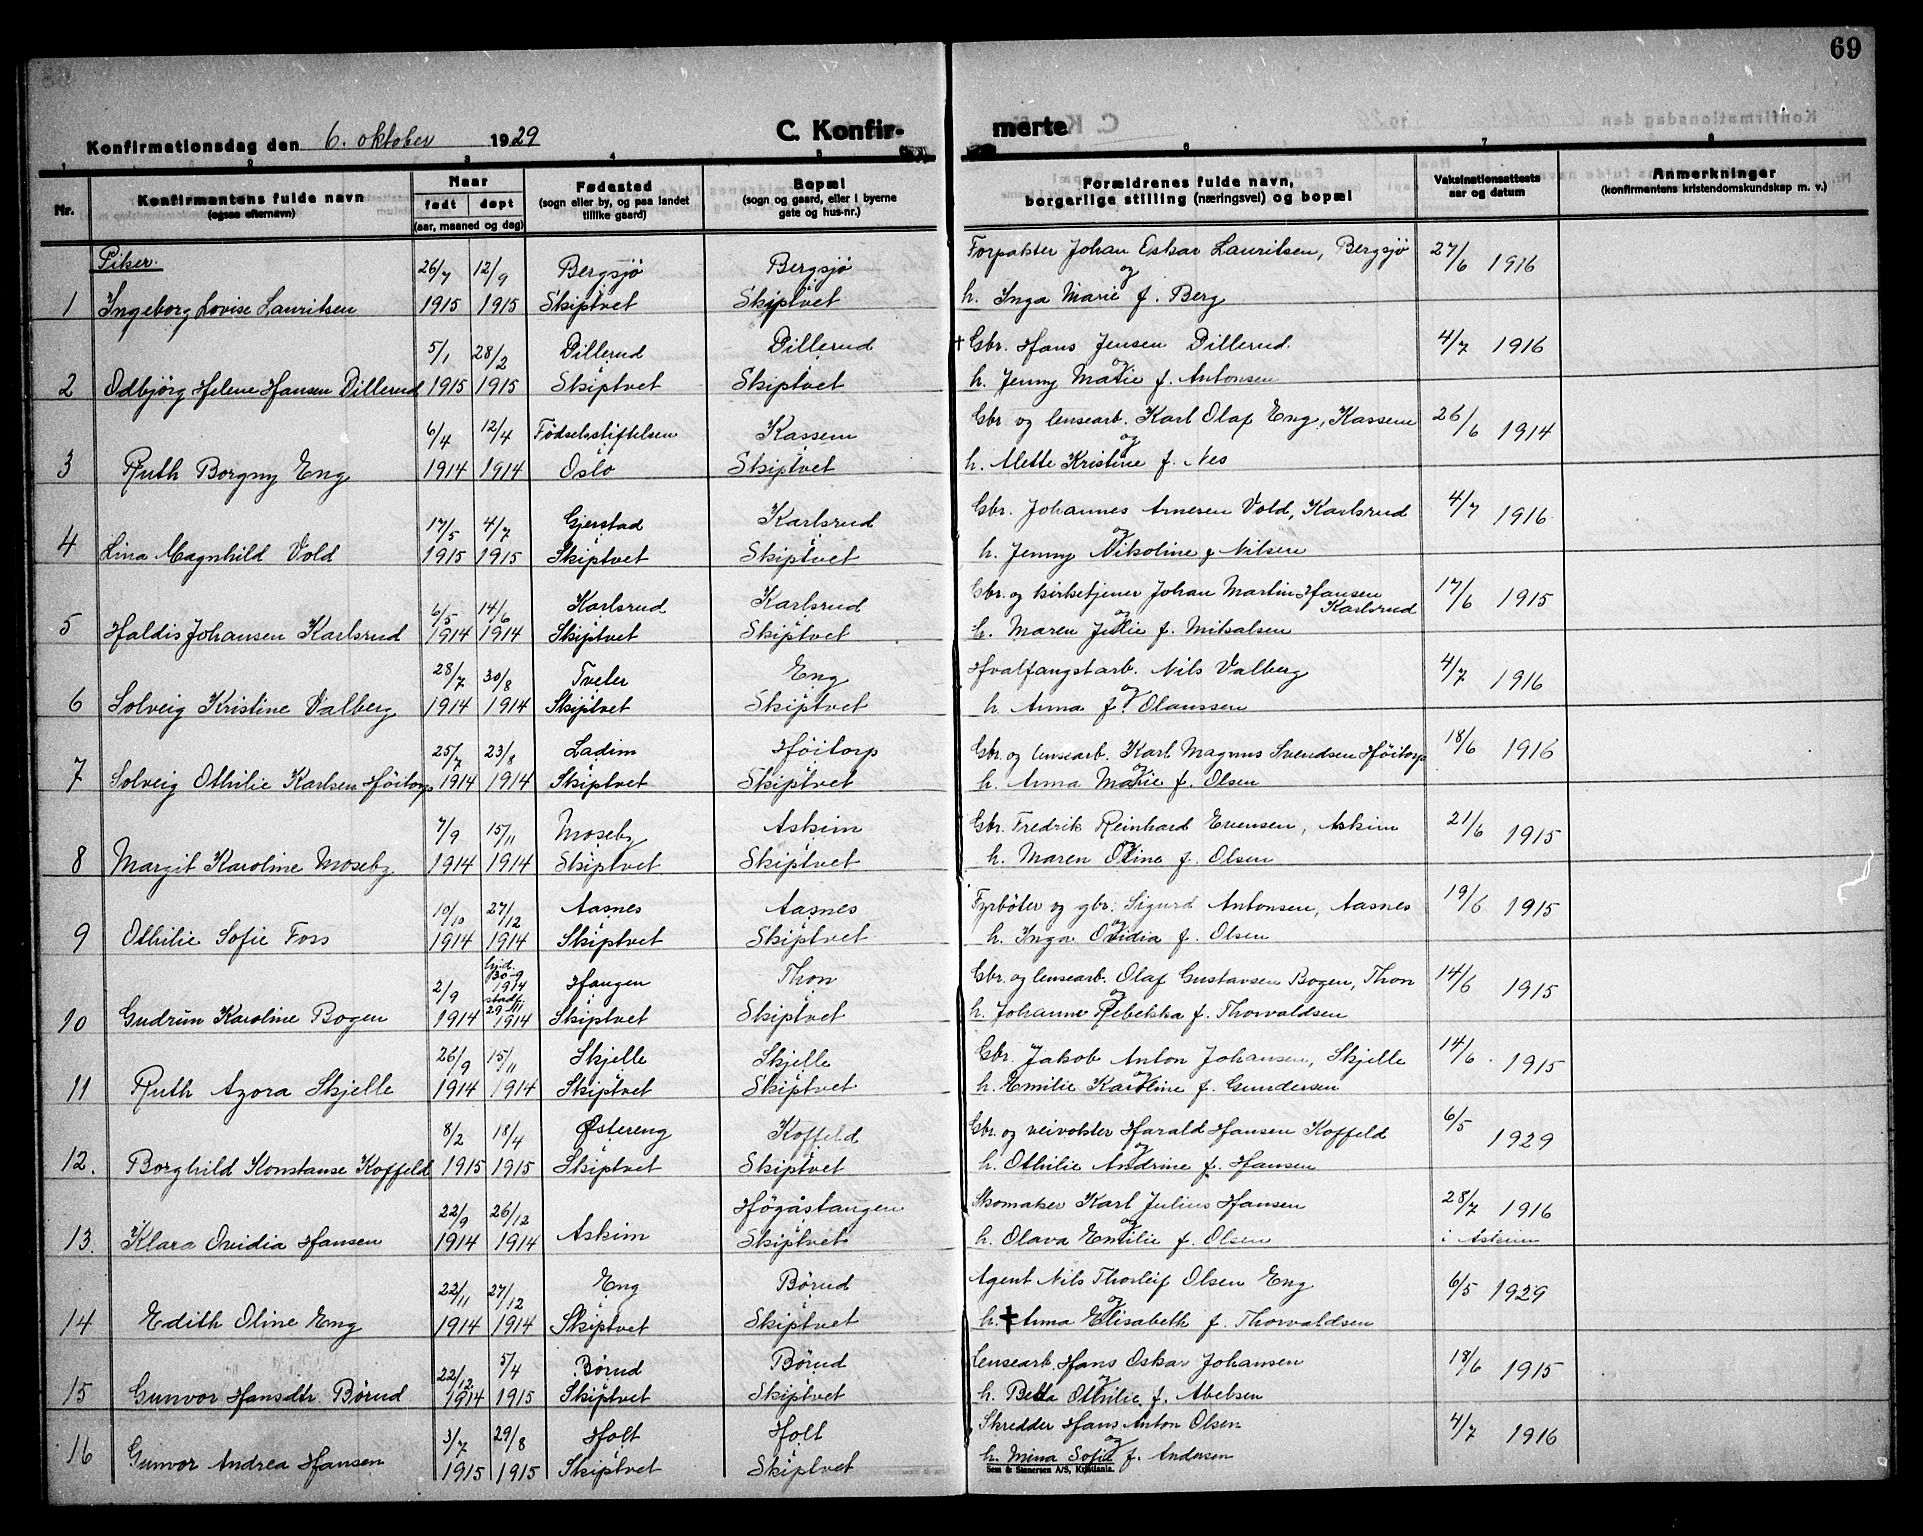 69
Konfirmationsdag den 6. oktober 1929 C. Konfir- merte
1 2 3 4 5 6 7 8
Nr. Konfirmantens fulde navn (ogsaa efternavn) Naar født døpt (aar, maaned og dag) Fødested (sogn eller by, og paa landet tillike gaard) Bopæl (sogn og gaard, eller i byerne gate og hus-nr.) Forældrenes fulde navn, borgerlige stilling (næringsvei) og bopæl Vaksinationsattests aar og datum Anmerkninger (konfirmantens kristendomskundskap m. v.)
Piker.
26/7 12/9 Bergsjö Bergsjö Forpakter Johan Oskar Lauritsen, Bergsjö og 27/6 1916
1 Ingeborg Lovise Lauritsen 1915 1915 Skiptvet Skiptvet h. Inga Marie f. Berg
5/1 28/2 Dillerud Dillerud + Gbr. Hans Jensen Dillerud og 4/7 1916
2 Odbjörg Helene Hansen Dillerud 1915 1915 Skiptvet Skiptvet h. Jenny Marie f. Antonsen
6/4 12/4 Födselsstiftelsen Kassem Gbr. og lensearb. Karl Olaf Eng, Kassem og 26/6 1914
3 Ruth Borgny Eng 1914 1914 Oslo Skiptvet h. Alette Kristine f. Nes
17/5 4/7 Gjerstad Karlsrud Gbr. Johannes Arnesen Vold, Karlsrud og 4/7 1916
4 Lina Magnhild Vold 1915 1915 Skiptvet Skiptvet h. Jenny Nikoline f Nilsen
6/5 14/6 Karlsrud Karlsrud Gbr. og kirketjener Johan Martin Hansen Karlsrud og 17/6 1915
5 Haldis Johansen Karlsrud 1914 1914 Skiptvet Skiptvet h. Maren Julie f. Mikalsen
28/7 30/8 Tveter Eng Hvalfangstarb. Nils Valberg og 4/7 1916
6 Solveig Kristine Valberg 1914 1914 Skiptvet Skiptvet h. Anna f. Olaussen
25/7 23/8 Ladim Höitorp Gbr. og lensearb. Karl Magnus Svendsen Höitorp og 18/6 1916
7 Solveig Othilie Karlsen Höitorp 1914 1914 Skiptvet Skiptvet h. Anna Marie f. Olsen
7/9 15/11 Moseby Askim Gbr. Fredrik Reinhard Evensen, Askim og 21/6 1915
8 Margit Karoline Moseby 1914 1914 Skiptvet Skiptvet h. Maren Oline f. Olsen
10/10 27/12 Aasnes Aasnes Fyrböter og gbr. Sigurd Antonsen, Aasnes og 19/6 1915
9 Othilie Sofie Foss 1914 1914 Skiptvet Skiptvet h. Inga Ovidia f. Olsen
2/9 hjd. 30-9 1914 stadf. Haugen Thon Gbr. og lensearb. Olaf Gustavsen Bogen, Thon og 14/6 1915
10 Gudrun Karoline Bogen 1914 29-11 1914 Skiptvet Skiptvet h. Johanne Rebekka f. Thorvaldsen
26/9 15/11 Skjelle Skjelle Gbr. Jakob Anton Johansen, Skjelle og 14/6 1915
11 Ruth Azora Skjelle 1914 1914 Skiptvet Skiptvet h. Emilie Karoline f. Gundersen
8/2 18/4 Østereng Koffeld Gbr. og veivokter Harald Hansen Koffeld og 6/5 1929
12. Borghild Konstanse Koffeld 1915 1915 Skiptvet Skiptvet h. Othilie Andrine f. Hansen
22/9 26/12 Askim Högåstangen Skomaker Karl Julius Hansen og 28/7 1916
13. Klara Ovidia Hansen 1914 1914 Skiptvet h. Olava Emilie f. Olsen i Askim
22/11 27/12 Eng Börud Agent Nils Thorleif Olsen Eng og 6/5 1929
14 Edith Oline Eng 1914 1914 Skiptvet Skiptvet h. + Anna Elisabeth f. Thorvaldsen
22/12 5/4 Börud Börud Lensearb. Hans Oskar Johansen og 18/6 1915
15 Gunvor Hansdtr. Börud 1914 1915 Skiptvet Skiptvet h. Othilie f. Abelsen
3/7 29/8 Holt Holt Skredder Hans Anton Olsen og 4/7 1916
16 Gunvor Andrea Hansen 1915 1915 Skiptvet Skiptvet h. Mina Sofie f. Andersen
Sem & Stenersen A/S, Kristiania.